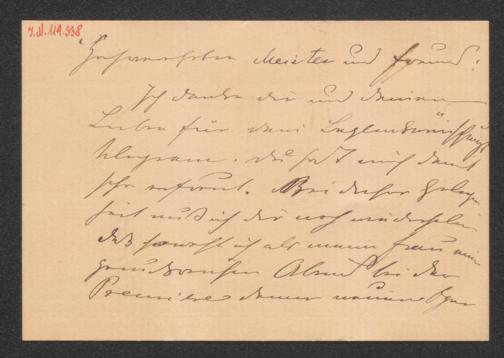 I.N. 119.338
Hochverehrter Meister und Freund!
Ich danke dir und deinen
Lieben für das Beglückwünschungs-
telegramm. Du hast mich damit
sehr erfreut. Bei dieser Gelegen-
heit muß ich dir noch wiederholen
daß sowohl ich als meine Frau einen
genußreichen Abend bei der
Premiere deiner neuen Oper